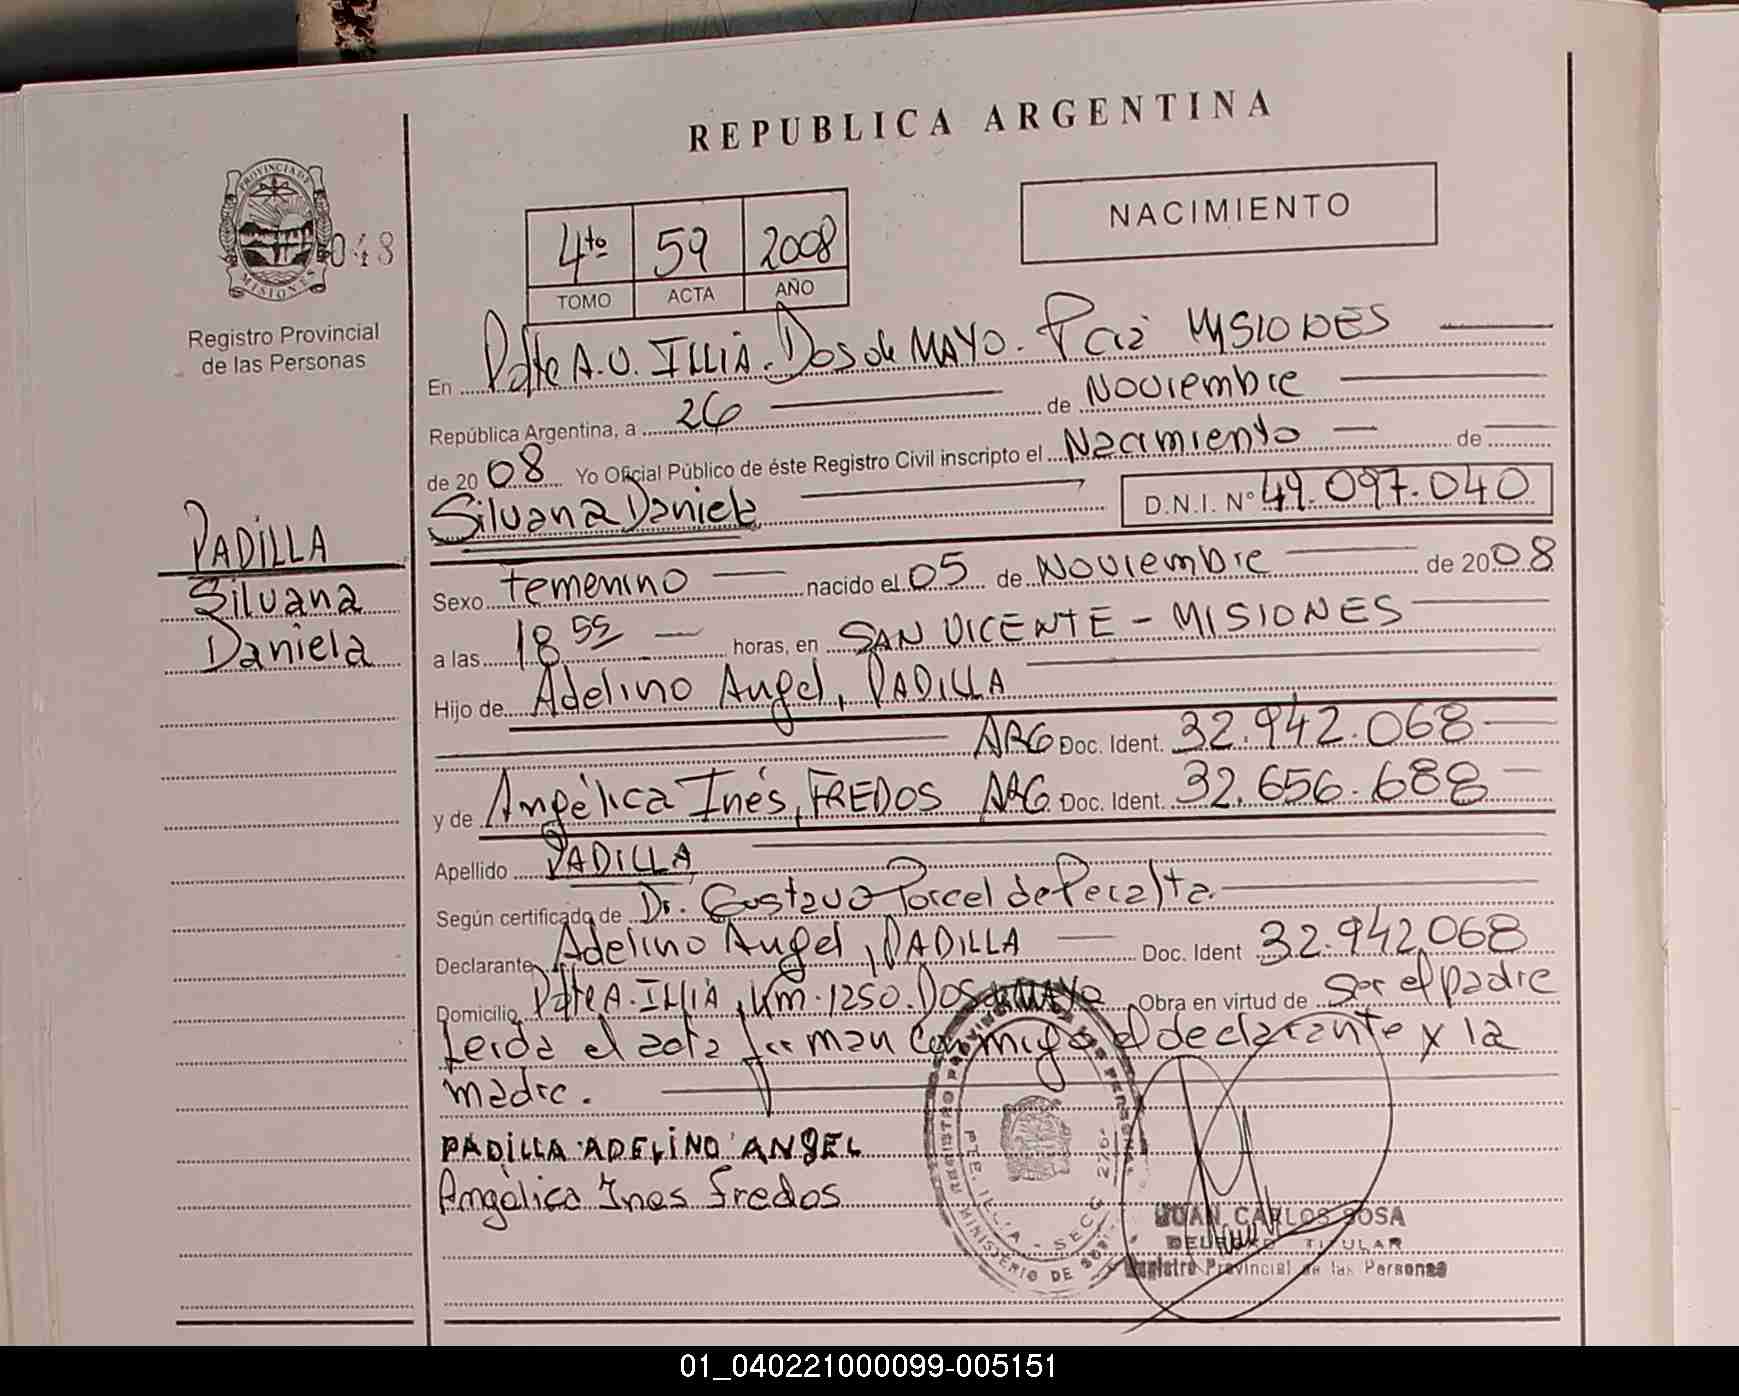 REPUBLICA ARGENTINA
PROVINCIA DE
MISIONES
048
Registro Provincial
de las Personas
4to 59 2008
TOMO ACTA AÑO
NACIMIENTO
En Pdte A.U. ILLIA. Dos de MAYO. Pcia MISIONES
República Argentina, a 26 de Noviembre
de 2008 Yo Oficial Público de éste Registro Civil inscripto el Nacimiento de
Silvana Daniela D.N.I. N° 49.097.040
PADILLA
Silvana
Daniela
Sexo femenino nacido el 05 de Noviembre de 2008
a las 18 55 horas, en SAN VICENTE - MISIONES
Hijo de Adelino Angel, PADILLA
ARG Doc. Ident. 32.942.068
y de Angélica Inés, FREDOS ARG. Doc. Ident. 32.656.688
Apellido PADILLA
Según certificado de Dr. Gustavo Porcel de Peralta.
Declarante Adelino Angel, PADILLA Doc. Ident 32.942.068
Domicilio Pdte A. ILLIA, Km. 1250. Dos de MAYO Obra en virtud de ser el padre
Leida el acta firman conmigo el declarante y la
madre.
PADILLA ADELINO ANGEL
Angélica Ines Fredos
JUAN CARLOS SOSA
TITULAR
Registro Provincial de las Personas
01_040221000099-005151